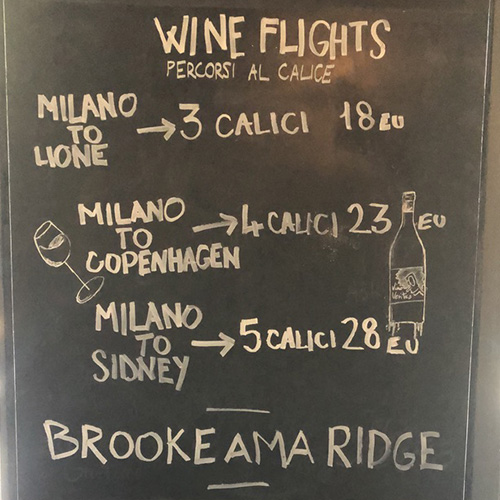 WINE FLIGHTS
PERCORSI AL CALICE
MILANO
TO
LIONE
→ 3 CALICI 18 EU
MILANO
TO
COPENHAGEN
→ 4 CALICI 23 EU
MILANO
TO
SIDNEY
→ 5 CALICI 28 EU
BROOKE AMA RIDGE